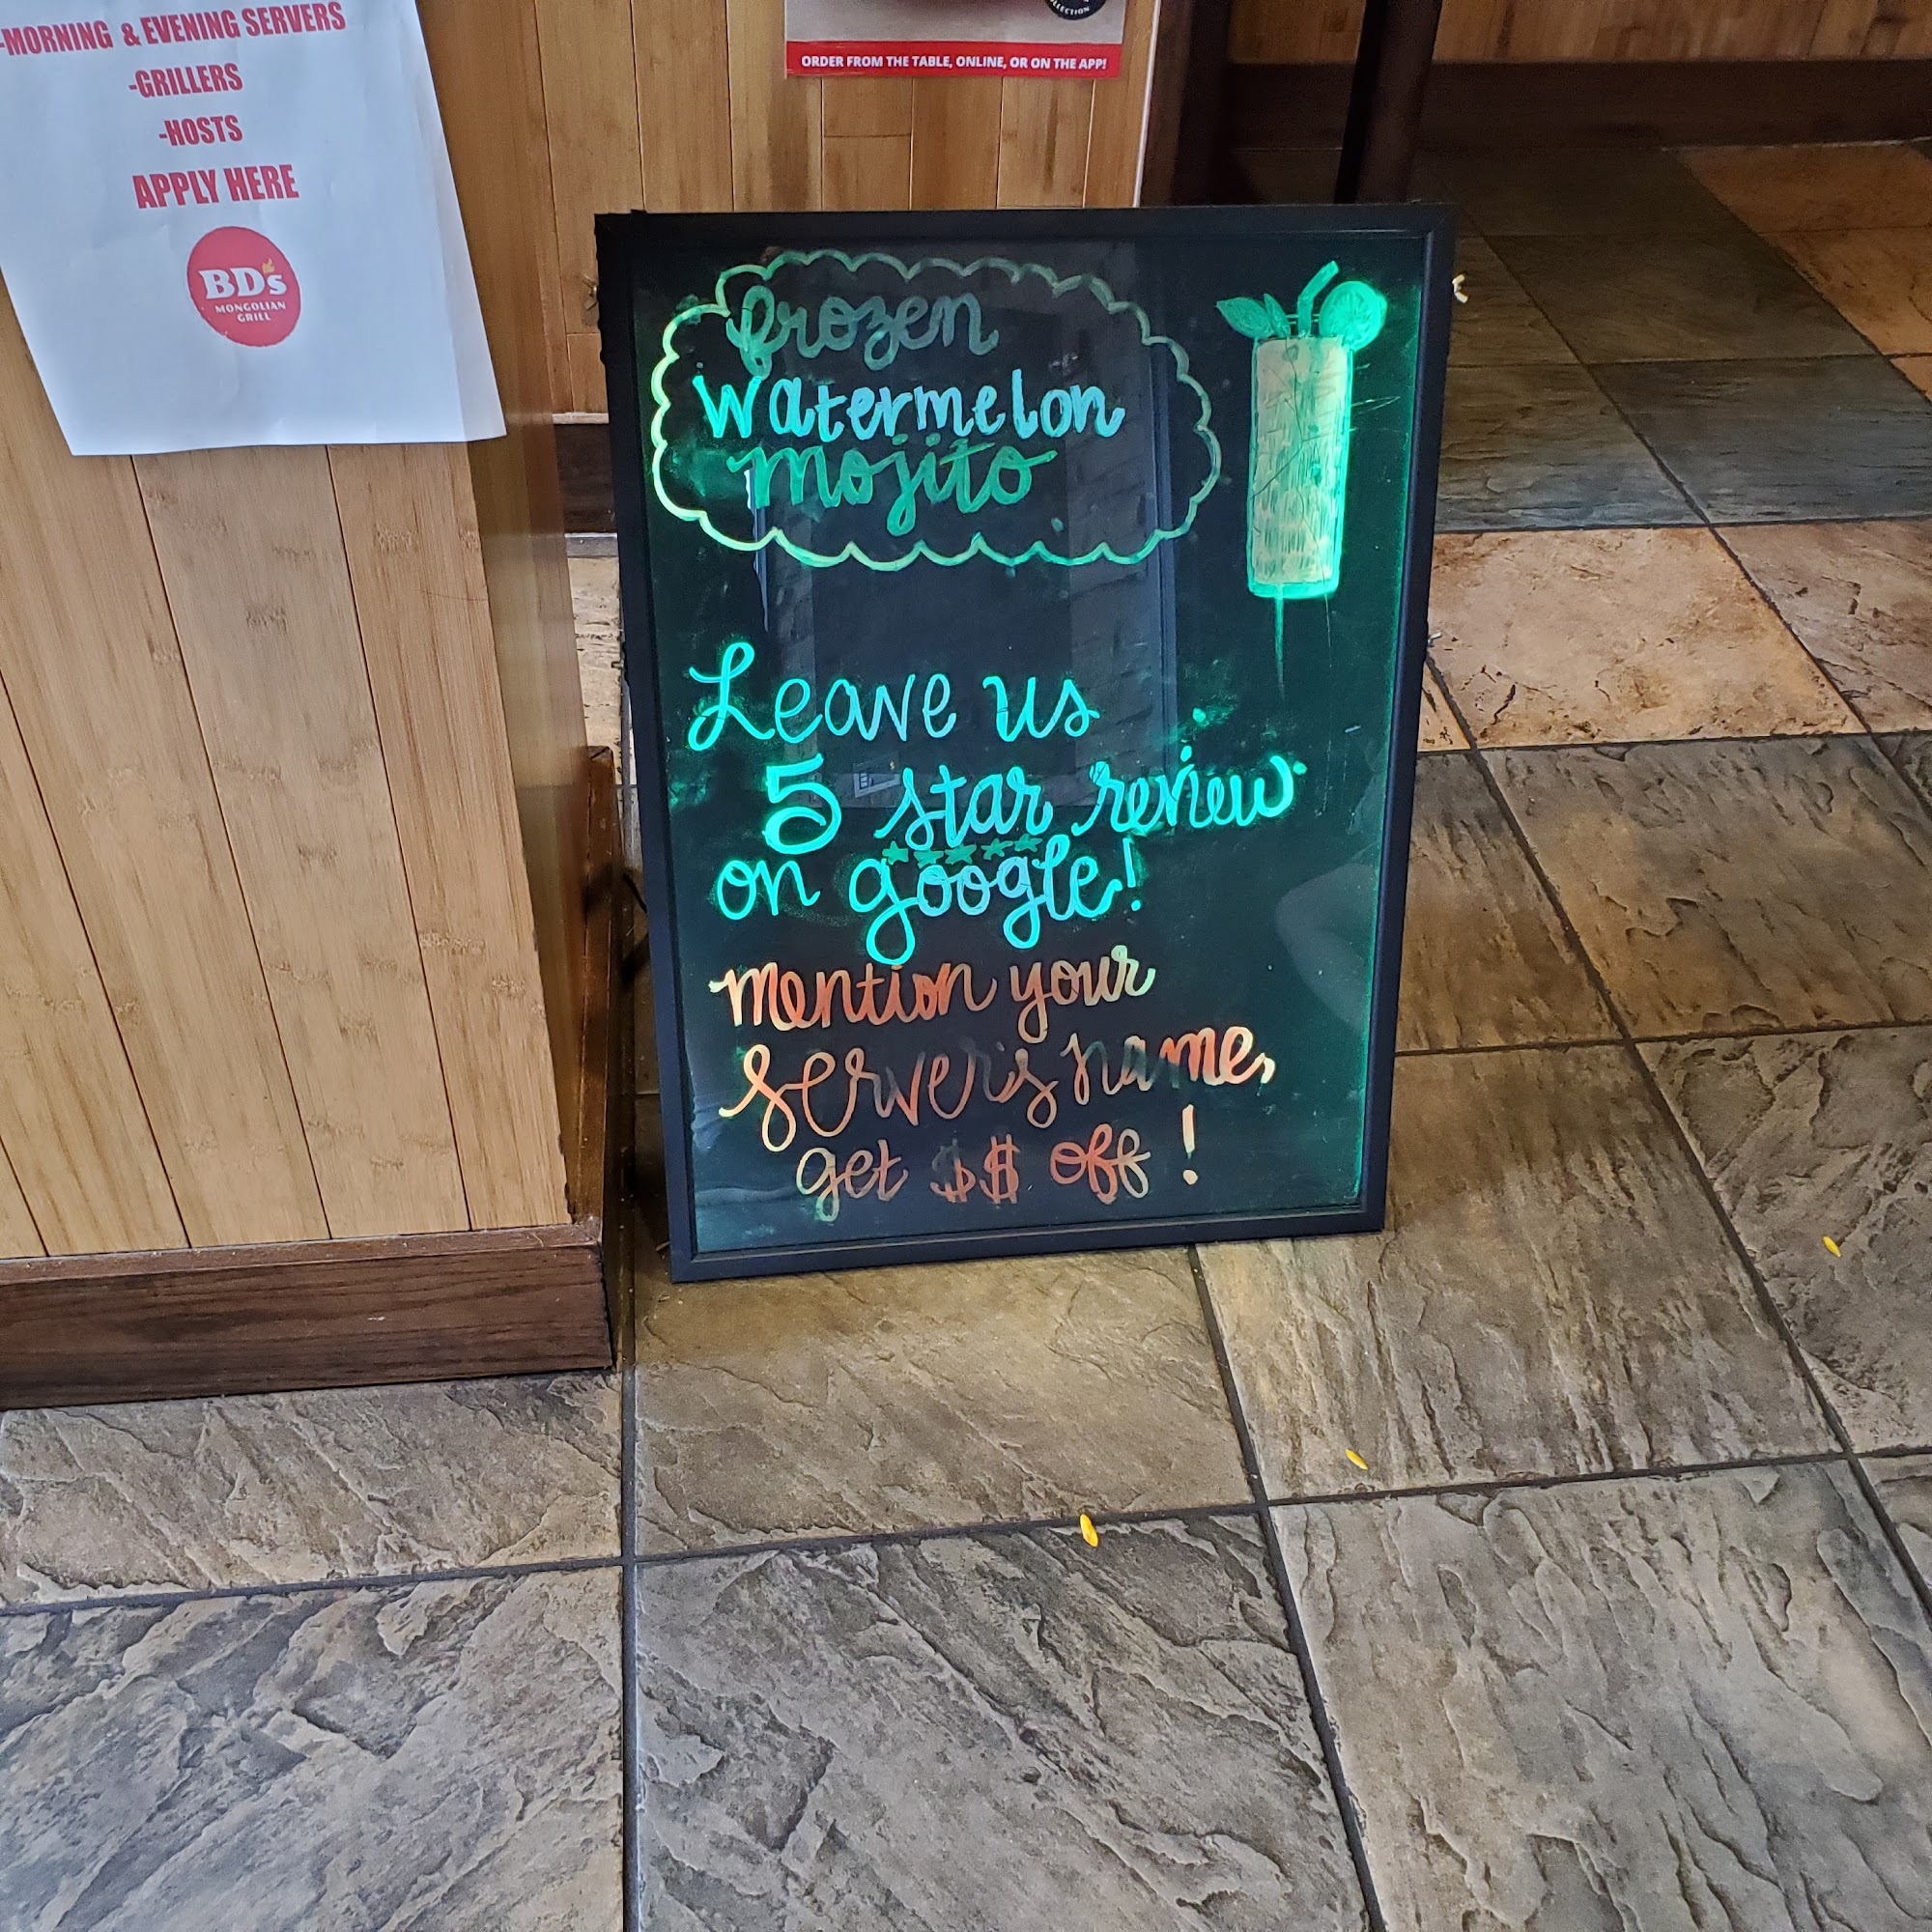 -MORNING & EVENING SERVERS
-GRILLERS
-HOSTS
APPLY HERE
BD's
MONGOLIAN
GRILL
ORDER FROM THE TABLE, ONLINE, OR ON THE APP!
frozen
watermelon
mojito
Leave us
5 star review
on google!
mention your
server's name,
get $$ off!